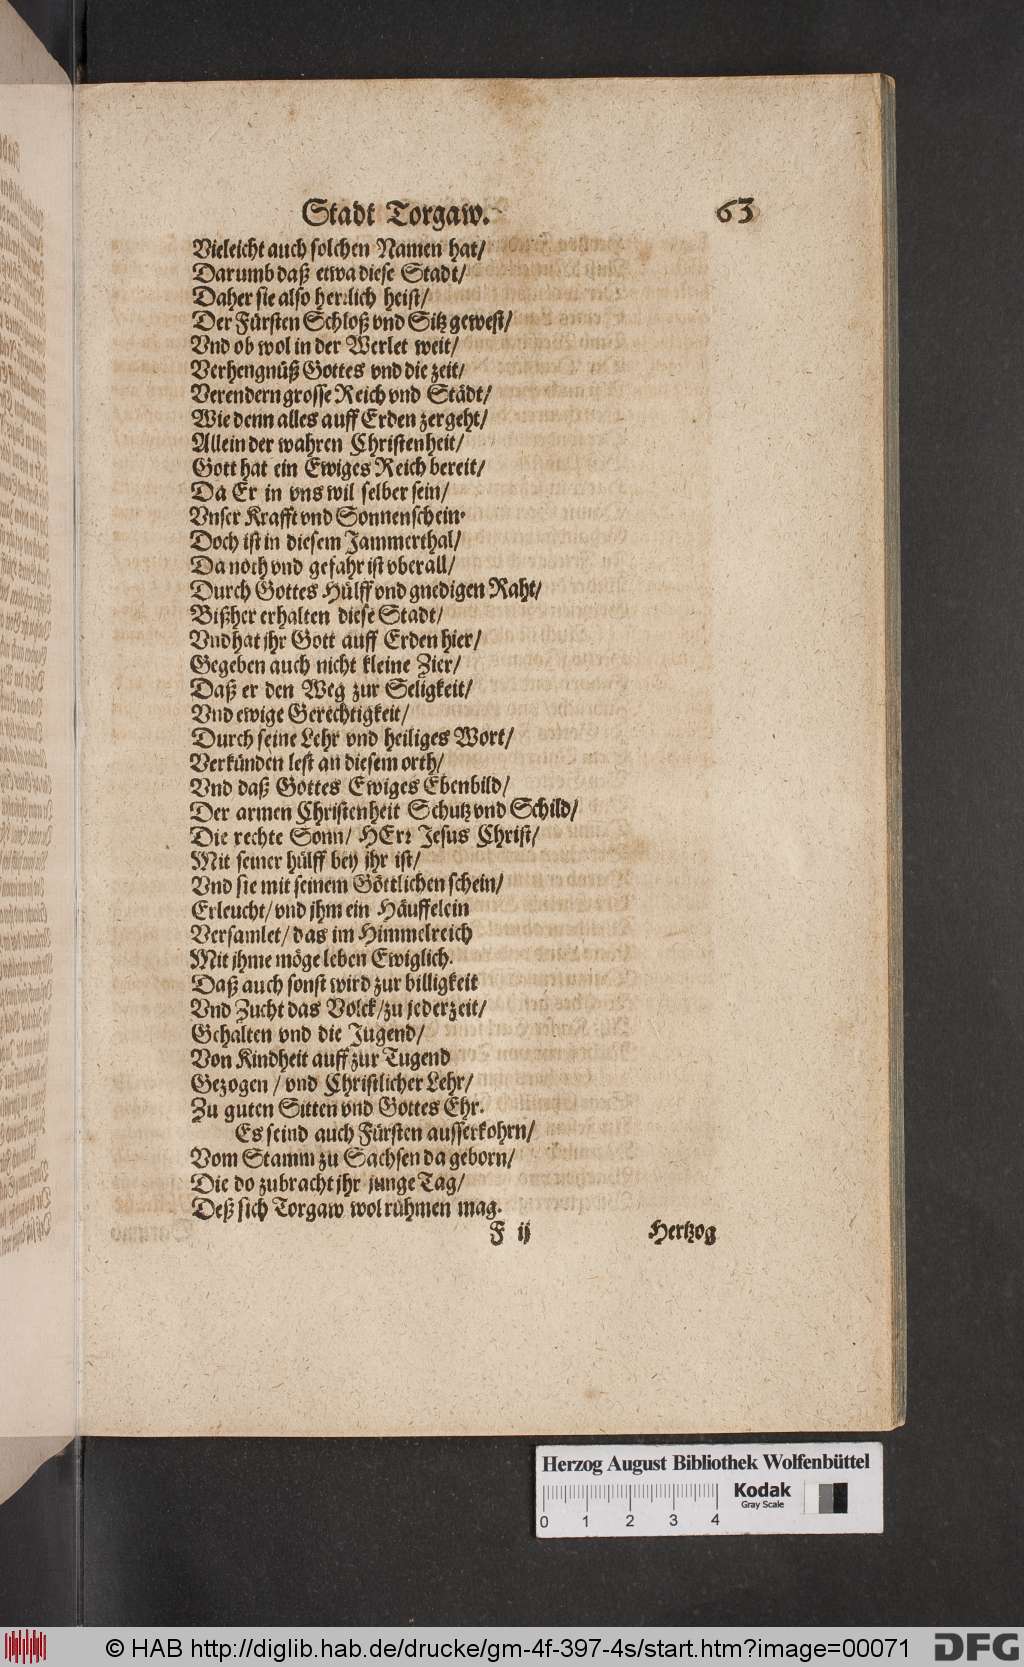 Stadt Torgaw. 63
Vieleicht auch solchen Namen hat/
Darumb daß etwa diese Stadt/
Daher sie also herꝛlich heist/
Der Fürsten Schloß vnd Sitz gewest/
Vnd ob wol in der Werlet weit/
Verhengnüß Gottes vnd die zeit/
Verendern grosse Reich vnd Städt/
Wie denn alles auff Erden zergeht/
Allein der wahren Christenheit/
Gott hat ein Ewiges Reich bereit/
Da Er in vns wil selber sein/
Vnser Krafft vnd Sonnenschein.
Doch ist in diesem Jammerthal/
Da noth vnd gefahr ist vberall/
Durch Gottes Hülff vnd gnedigen Raht/
Bißher erhalten diese Stadt/
Vnd hat jhr Gott auff Erden hier/
Gegeben auch nicht kleine Zier/
Daß er den Weg zur Seligkeit/
Vnd ewige Gerechtigkeit/
Durch seine Lehr vnd heiliges Wort/
Verkünden lest an diesem orth/
Vnd daß Gottes Ewiges Ebenbild/
Der armen Christenheit Schutz vnd Schild/
Die rechte Sonn/ HErꝛ Jesus Christ/
Mit seiner hülff bey jhr ist/
Vnd sie mit seinem Göttlichen schein/
Erleucht/ vnd jhm ein Häuffelein
Versamlet/ das im Himmelreich
Mit jhme möge leben Ewiglich.
Daß auch sonst wird zur billigkeit
Vnd Zucht das Volck/zu jederzeit/
Gehalten vnd die Jugend/
Von Kindheit auff zur Tugend
Gezogen / vnd Christlicher Lehr/
Zu guten Sitten vnd Gottes Ehr.
Es seind auch Fürsten ausserkohrn/
Vom Stamm zu Sachsen da geborn/
Die do zubracht jhr junge Tag/
Deß sich Torgaw wol rühmen mag.
F ij Hertzog
Herzog August Bibliothek Wolfenbüttel
Kodak
Gray Scale
0 1 2 3 4
© HAB http://diglib.hab.de/drucke/gm-4f-397-4s/start.htm?image=00071
DFG